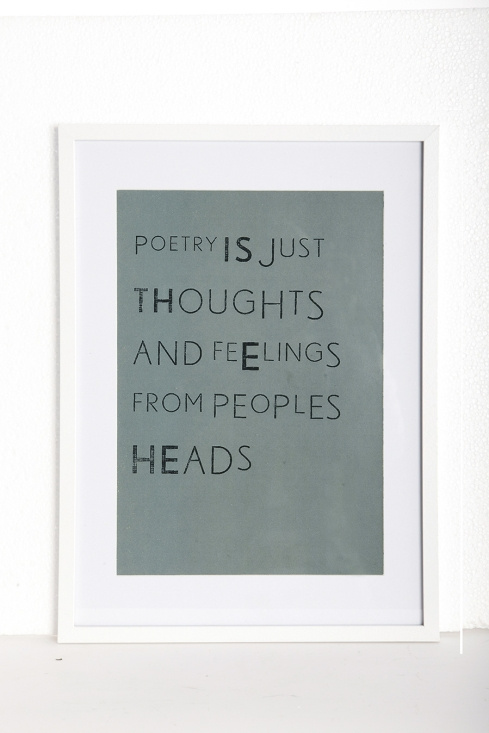 POETRY IS JUST
THOUGHTS
AND FEELINGS
FROM PEOPLES
HEADS